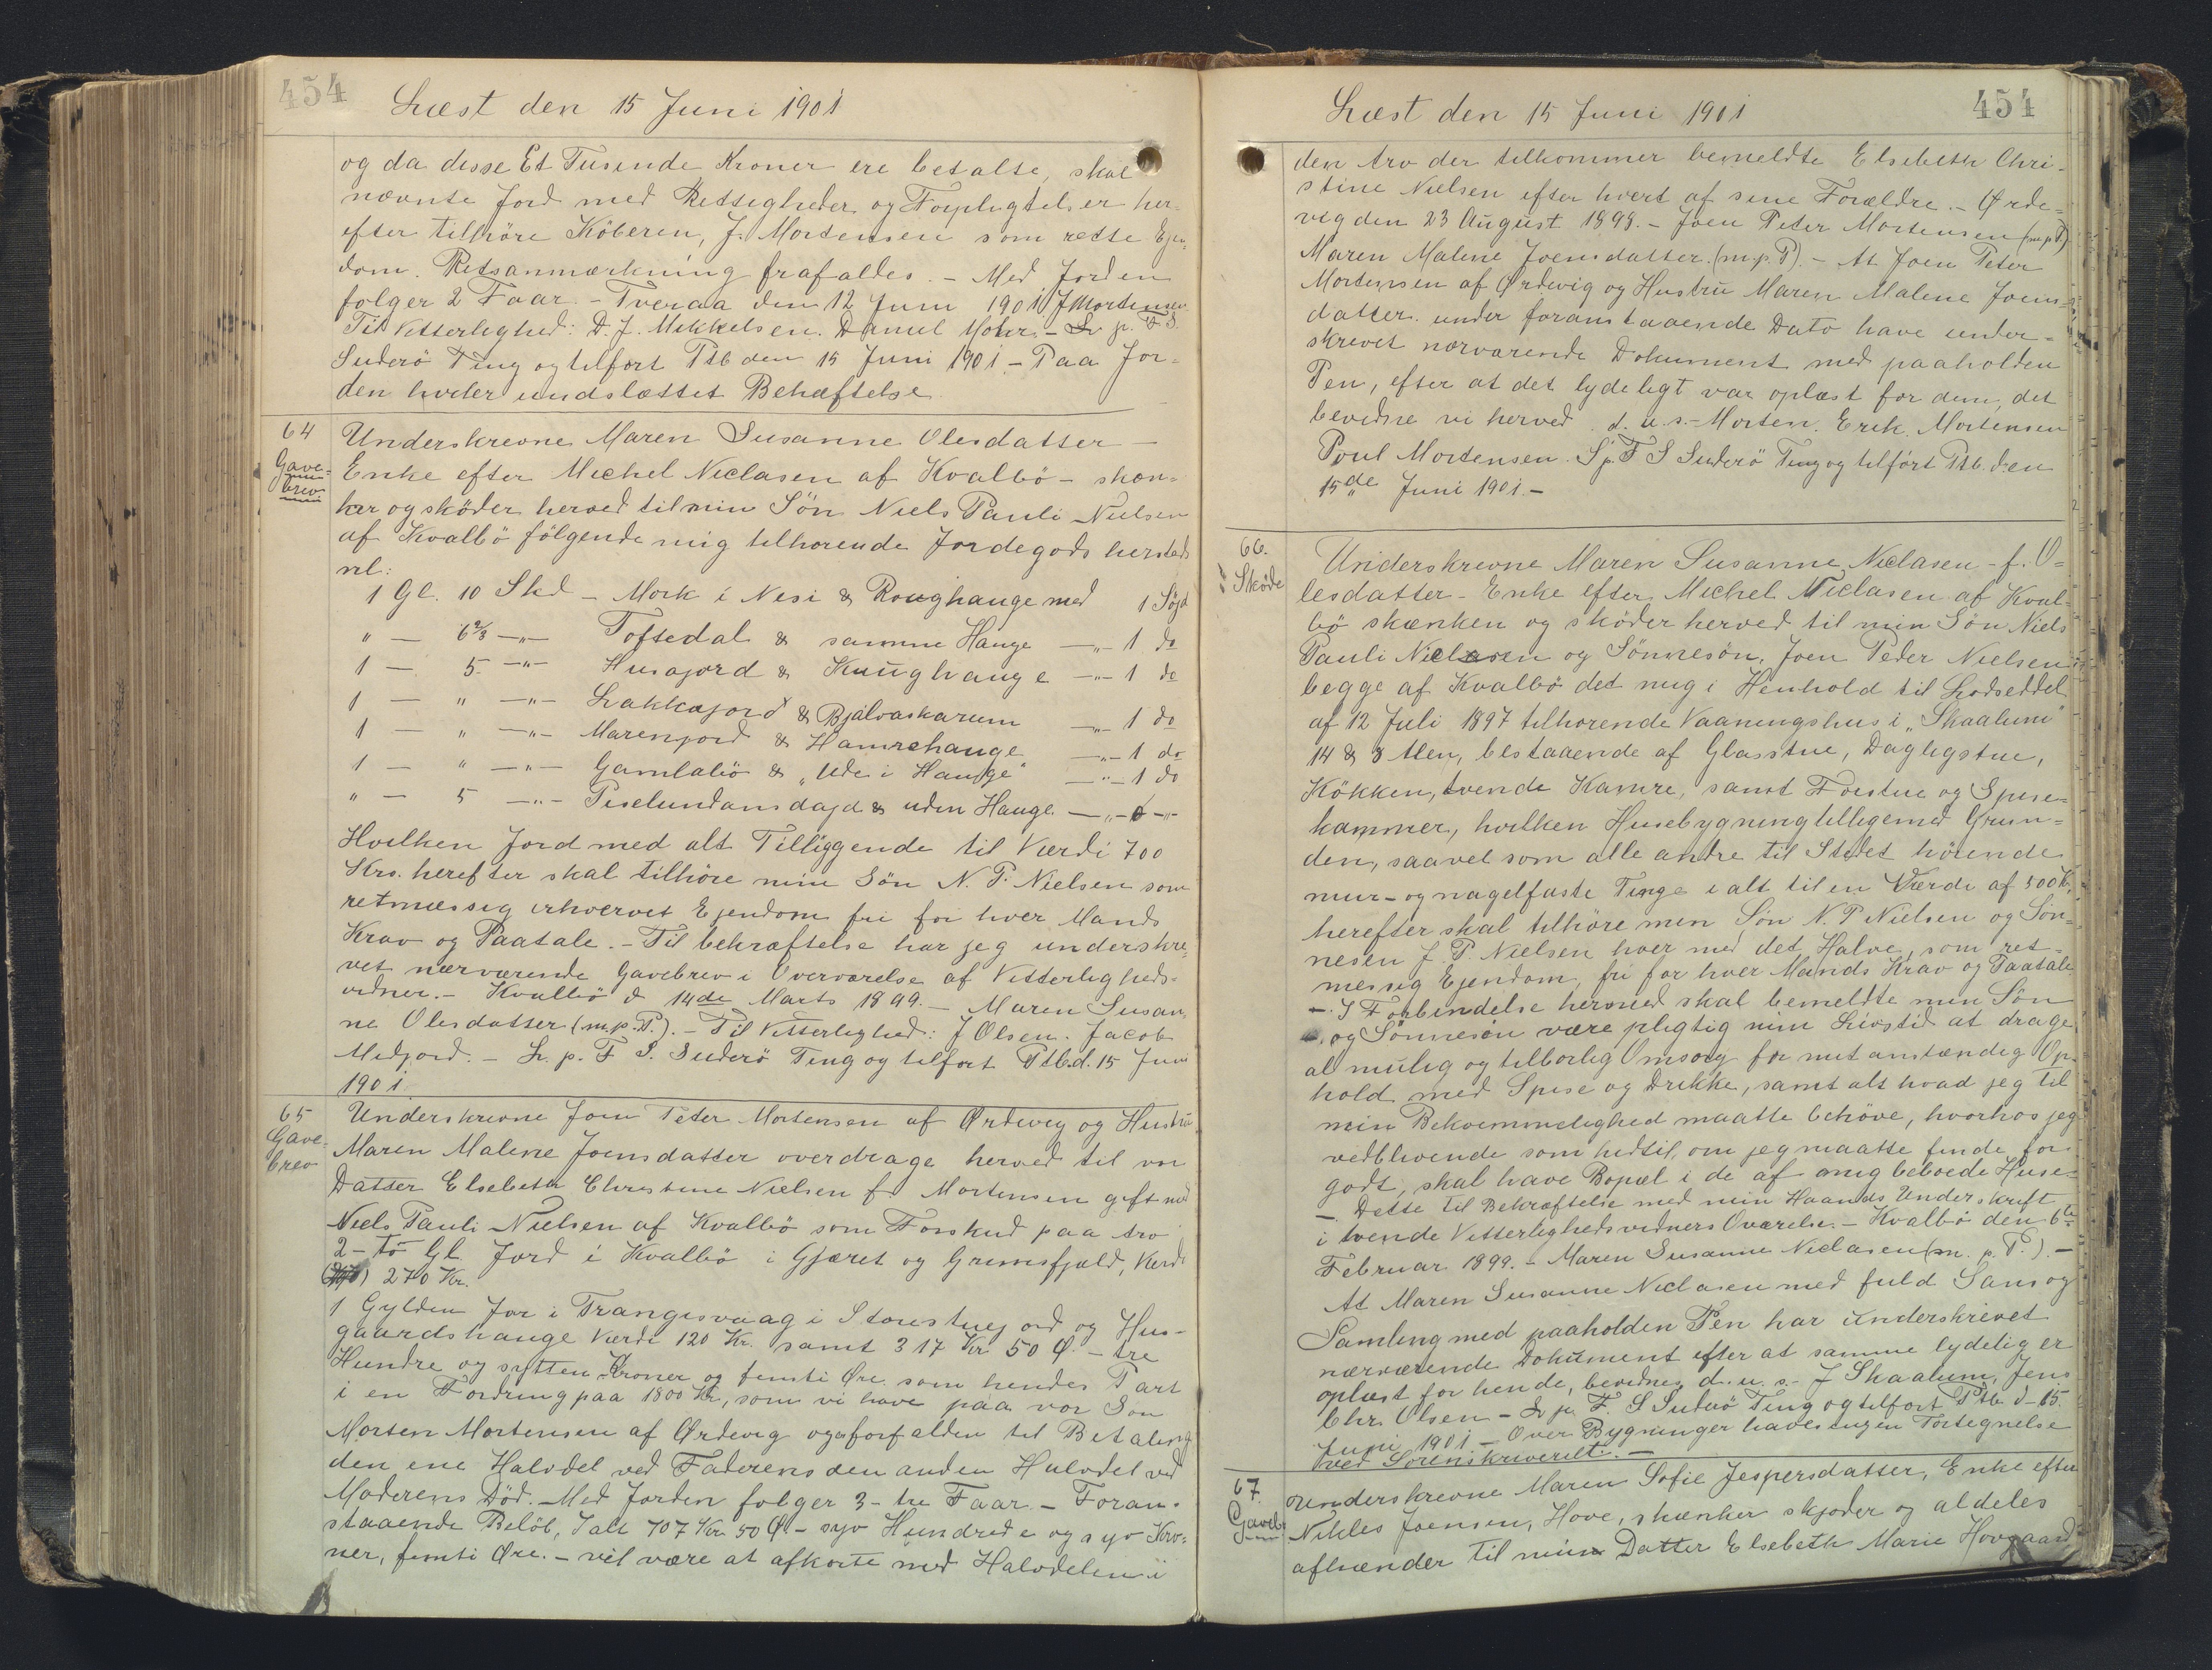 454
Læst den 15 Juni 1901
og da disse Et Tusende Kroner ere betalte, skal
nævnte Jord med Rettigheder og Forpligtelser her-
efter tilhöre Köberen, J. Mortensen som rette Ejen-
dom. Retsanmærkning frafaldes. - Med Jorden
følger 2 Faar. - Tveraa den 12 Juni 1901 J Mortensen
Til Vitterlighed: D. J. Mikkelsen. Daniel Mohr. - L. p. F S.
Suderö Ting og tilfört Ptb den 15 Juni 1901. - Paa Jor-
den hviler uudslettet Behæftelse
64
Gave-
brev
Underskrevne Maren Susanne Olesdatter -
Enke efter Michel Niclasen af Kvalbö - skæn-
ker og sköder herved til min Sön Niels Pauli Nielsen
af Kvalbö fölgende mig tilhorende Jordegods hersteds
nl:
1 Gl. 10 Skd - Mork i Nesi & Roughauge med 1 Söjd
" - 6 2/3 -"- Toftedal & samme Hauge -"- 1 do
1 - 5 -"- Husajord & Kuughauge -"- 1 do
1 - " -"- Lakkajord & Bjálvaskarum -"- 1 do
1 - " -"- Marenjord & Hamrehauge -"- 1 do
1 - " -"- Gamlabö & "Ude i Hauge" -"- 1 do
" - 5 -"- uden Hauge -"-
Hvilken Jord med alt Tilliggende til Værdi 700
Krs. herefter skal tilhöre min Sön N. P. Nielsen som
retmæssig erhvervet Ejendom fri for hver Mands
Krav og Paatale. - Til bekræftelse har jeg underskre-
vet nærværende Gavebrev i Overværelse af Vitterligheds-
vidner. - Kvalbö d 14de Marts 1899. - Maren Susan-
ne Olesdatter (m.p.P.). - Til Vitterlighed: J Olsen. Jacob
Midjord. - L. p. F S. Suderö Ting og tilfört Ptb. d. 15 Juni
1901
65
Gave-
brev
Underskrevne Joen Peter Mortensen af Ørdevig og Hustru
Maren Malene Joensdatter overdrage herved til vor
Datter Elsebeth Christine Nielsen f. Mortensen gift med
Niels Pauli Nielsen af Kvalbö som Forskud paa Arv
2 - to Gl. Jord i Kvalbö i Gjæret og Grimsfjeld, Værdi
270 Kr.
1 Gylden Jor i Trangisvaag i Storestuejord og Hus-
gaardshauge Værdi 120 Kr. samt 317 Kr 50 Ø. - tre
Hundre og sytten Kroner og femti Øre som hendes Part
i en Fordring paa 1800 Kr, som vi have paa vor Sön
Morten Mortensen af Ørdevig og forfalden til Betaling
den ene Halvdel ved Faderens den anden Halvdel ved
Moderens Död. - Med Jorden følger 3 - tre Faar. - Foran-
staaende Belöb, I alt 707 Kr 50 Ø - syv Hundrede og syv Kro-
ner, femti Øre. - vil være at afkorte med Halvdelen i
Læst den 15 Juni 1901
454
den Arv der tilkommer bemeldte Elsebeth Chri-
stine Nielsen efter hvert af sine Forældre. - Ørde-
vig den 23 August 1898. - Joen Peter Mortensen (m.p.P)
Maren Malene Joensdatter. (m.p.P). - At Joen Peter
Mortensen af Ørdevig og Hustru Maren Malene Joens-
datter under foranstaaende Dato have under-
skrevet nærværende Dokument med paaholden
Pen, efter at det lydeligt var oplæst for dem, det
bevidne vi herved. d. u. s. - Morten. Erik. Mortensen
Poul Mortensen. L p. F S Suderö Ting og tilfört Ptb. den
15de Juni 1901. -
66.
Sköde
Underskrevne Maren Susanne Niclasen - f. O-
lesdatter - Enke efter Michel Niclasen af Kval-
bö skænken og sköder herved til min Sön Niels
Pauli Nielsen og Sönnesön, Joen Peder Nielsen
begge af Kvalbö det mig i Henhold til Lodseddel
af 12 Juli 1897 tilhorende Vaaningshus i "Skaalum"
14 & 8 Alen, bestaaende af Glasstue, Dagligstue,
Kökken, tvende Kamre, samt Forstue og Spise-
kammer, hvilken Husebygning tilligemed Grun-
den, saavel som alle andre til Stedet hörende
mur- og nagelfaste Tinge i alt til en Værdi af 500 K,
herefter skal tilhöre min Sön N. P Nielsen og Sön-
nesön J. P. Nielsen hver med det Halve, som ret-
mæssig Ejendom, fri for hver Mands Krav og Paatale
-. I Forbindelse hermed skal bemeldte min Sön
og Sönnesön være pligtig min Livstid at drage
al mulig og tilbørlig Omsorg for mit anstændig Op-
hold med Spise og Drikke, samt alt hvad jeg til
min Bekvemmelighed maatte behöve, hvorhos jeg
vedblivende som hidtil, om jeg maatte finde for
godt, skal have Bopæl i de af mig beboede Huse
-. Dette til Bekræftelse med min Haands Underskrift
i tvende Vitterlighedsvidners Overværelse. - Kvalbö den 6te
Februar 1899. - Maren Susanne Niclasen (m. p. P.). -
At Maren Susanne Niclasen med fuld Sans og
Samling med paaholden Pen har underskrevet
nærværende Dokument efter at samme lydelig er
oplæst for hende, bevidnes d. u. s. - J Skaalum, Jens
Chr. Olsen - L p. F. S Suderö Ting og tilfört Ptb d - 15.
Juni 1901 - Over Bygninger haves ingen Fortegnelse
ved Sorenskriveriet. -
67.
Gaveb
Underskrevne Maren Sofie Jespersdatter, Enke efter
Nikles Joensen, Hove, skænker skjøder og aldeles
afhænder til min Datter Elsebeth Marie Hovgaard